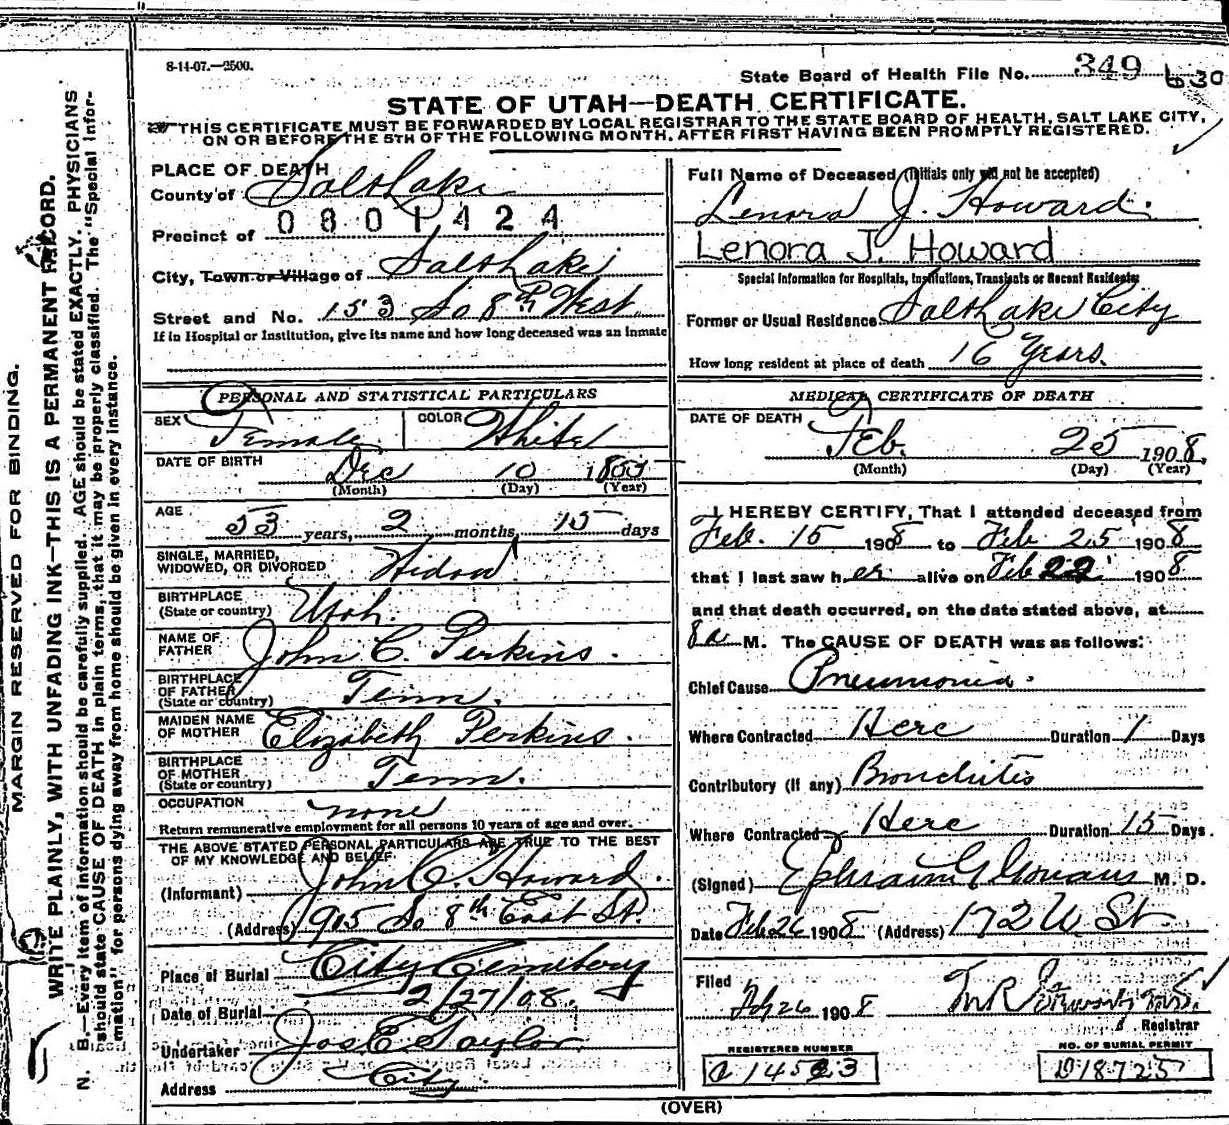 8-14-07.—2500.
State Board of Health File No. 349 630
STATE OF UTAH—DEATH CERTIFICATE.
THIS CERTIFICATE MUST BE FORWARDED BY LOCAL REGISTRAR TO THE STATE BOARD OF HEALTH, SALT LAKE CITY,
ON OR BEFORE THE 5TH OF THE FOLLOWING MONTH, AFTER FIRST HAVING BEEN PROMPTLY REGISTERED.
MARGIN RESERVED FOR BINDING.
WRITE PLAINLY, WITH UNFADING INK—THIS IS A PERMANENT RECORD.
N. B.—Every item of information should be carefully supplied. AGE should be stated EXACTLY. PHYSICIANS
should state CAUSE OF DEATH in plain terms, that it may be properly classified. The "Special Infor-
mation" for persons dying away from home should be given in every instance.
PLACE OF DEATH
County of Salt Lake
0801424
Precinct of
City, Town or Village of Salt Lake
Street and No. 153 So 8th West
If in Hospital or Institution, give its name and how long deceased was an inmate
PERSONAL AND STATISTICAL PARTICULARS
SEX Female COLOR White
DATE OF BIRTH Dec 10
(Month) (Day) (Year)
AGE 53 years, 2 months, 15 days
SINGLE, MARRIED,
WIDOWED, OR DIVORCED Widow
BIRTHPLACE
(State or country) Utah.
NAME OF
FATHER John C. Perkins.
BIRTHPLACE
OF FATHER
(State or country) Tenn.
MAIDEN NAME
OF MOTHER Elizabeth Perkins.
BIRTHPLACE
OF MOTHER
(State or country) Tenn.
OCCUPATION none
Return remunerative employment for all persons 10 years of age and over.
THE ABOVE STATED PERSONAL PARTICULARS ARE TRUE TO THE BEST
OF MY KNOWLEDGE AND BELIEF.
(Informant) John C. Howard.
(Address) 905 So 8th East St.
Place of Burial City Cemetery
Date of Burial 2/27/08
Undertaker Jos E Taylor
Address City
Full Name of Deceased (Initials only will not be accepted)
Lenora J. Howard.
Lenora J. Howard
Special Information for Hospitals, Institutions, Transients or Recent Residents
Former or Usual Residence Salt Lake City
How long resident at place of death 16 Years.
MEDICAL CERTIFICATE OF DEATH
DATE OF DEATH Feb. 25 1908.
(Month) (Day) (Year)
I HEREBY CERTIFY, That I attended deceased from
Feb. 15 1908 to Feb 25 1908
that I last saw her alive on Feb 22 1908
and that death occurred, on the date stated above, at
8 a M. The CAUSE OF DEATH was as follows:
Chief Cause Pneumonia.
Where Contracted Here Duration 1 Days
Contributory (if any) Bronchitis
Where Contracted Here Duration 15 Days
(Signed) Ephraim G Gowans M. D.
Date Feb 26 1908 (Address) 172 W St
Filed
Feb 26 1908
Registrar
REGISTERED NUMBER NO. OF BURIAL PERMIT
D18725
(OVER)